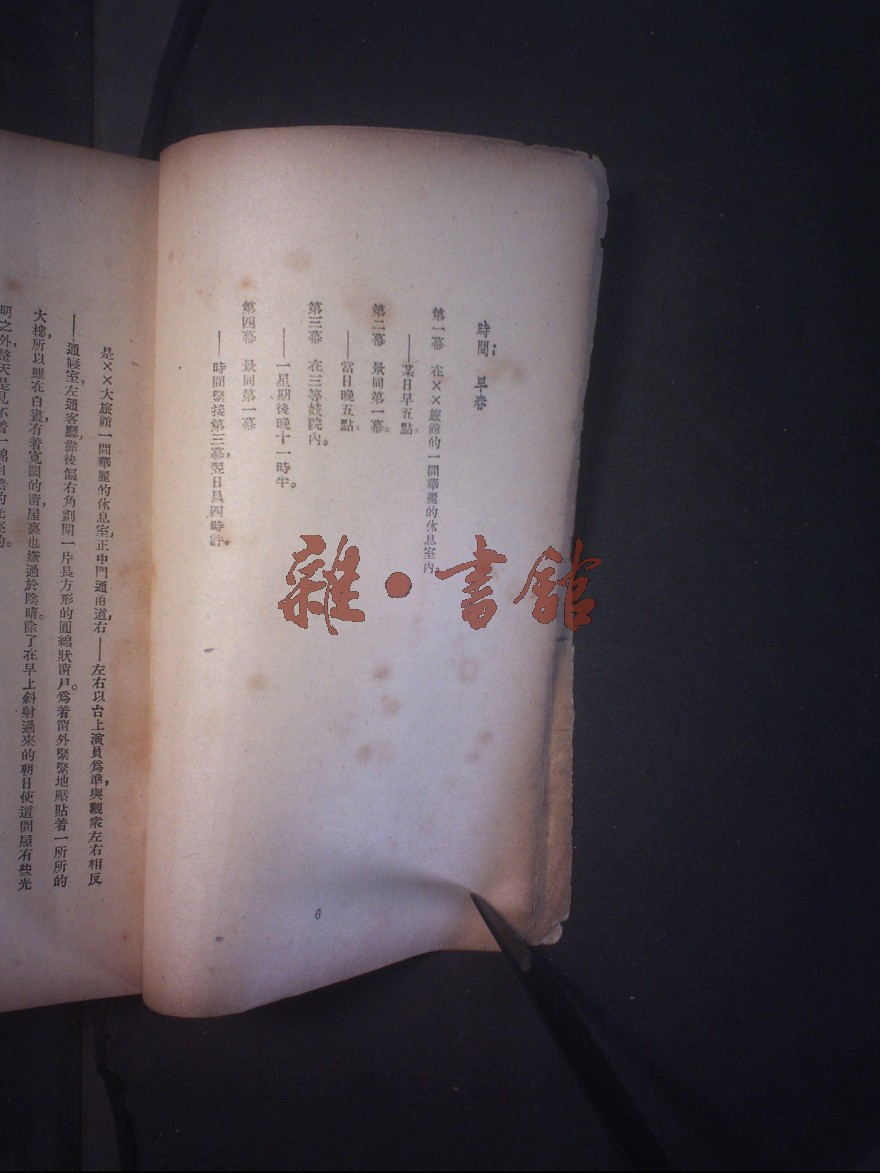 時間： 早春
第一幕 在××旅館的一間華麗的休息室內。
——某日早五點。
第二幕 景同第一幕。
——當日晚五點。
第三幕 在三等妓院內。
——一星期後晚十一時半。
第四幕 景同第一幕
——時間緊接第三幕，翌日晨四時許。
6
是××大旅館一間華麗的休息室，正中門通甬道，右——左右以台上演員爲準，與觀衆左右相反
——通寢室，左通客廳，靠後偏右角劃開一片長方形的圓線狀窗戶。爲着窗外緊緊地壓貼着一所所的
大樓，所以雖在白晝，有着寬闊的窗，屋裏也嫌過於陰暗。除了在早上斜射過來的朝日使這間屋有些光
明之外，整天是見不着一線自然的光亮的。
雜·書館